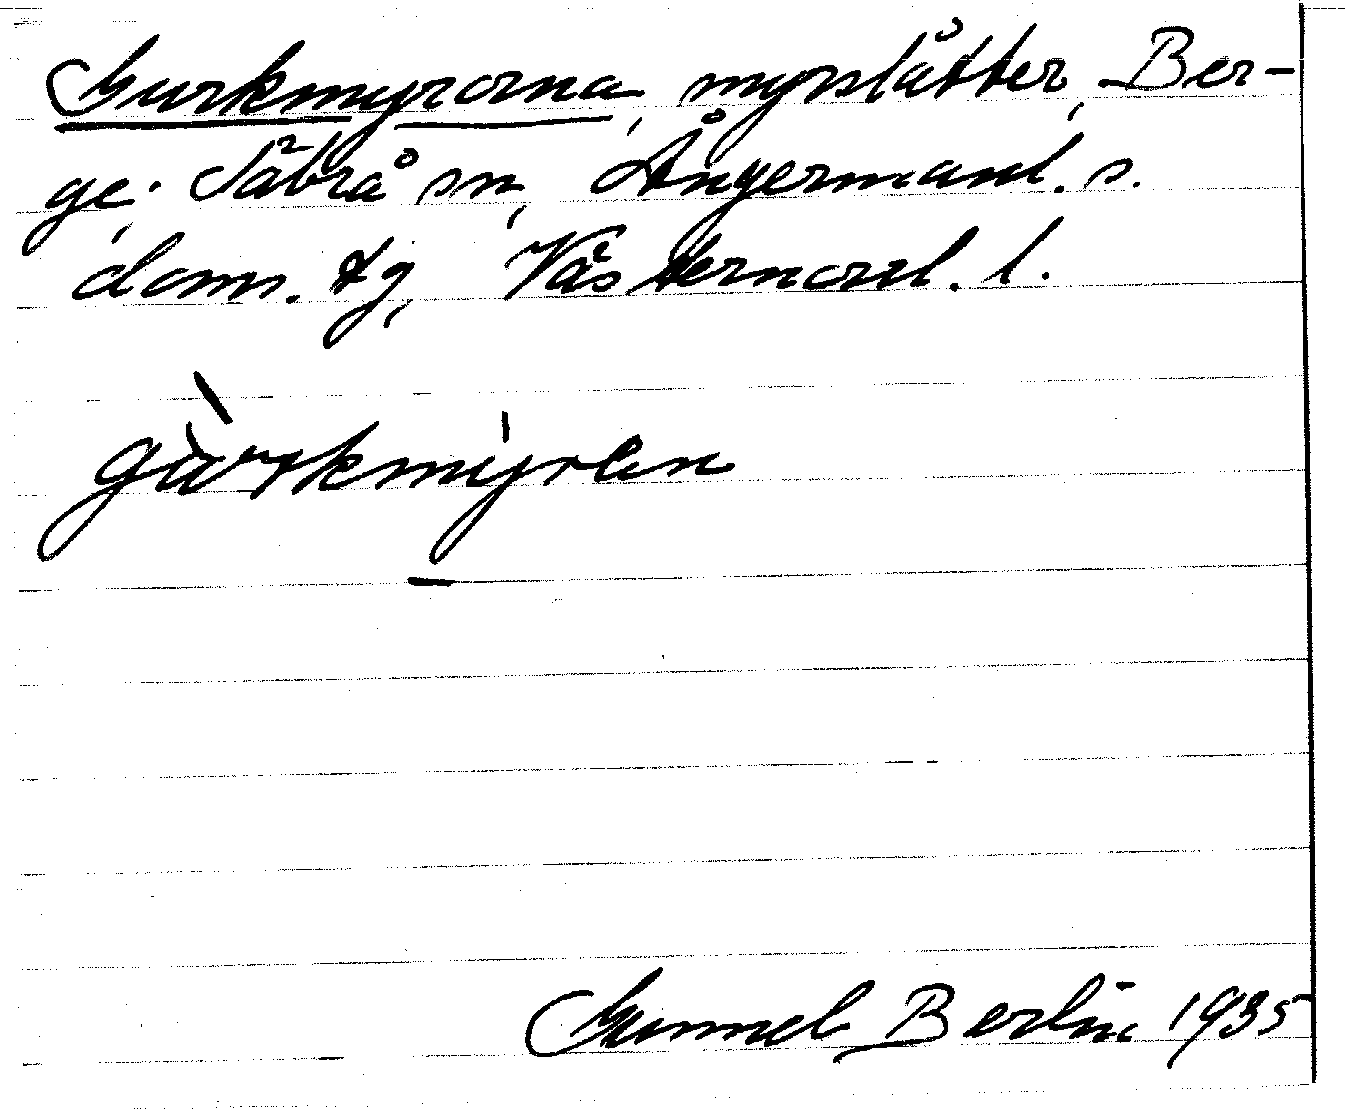 Gurkmyrorna, myrslåtter, Ber-
ge, Säbrå sn, Ångermanl. s.
doms. tg, Västernorrl. l.
gùrkmýren
Gunnel Berlin 1935